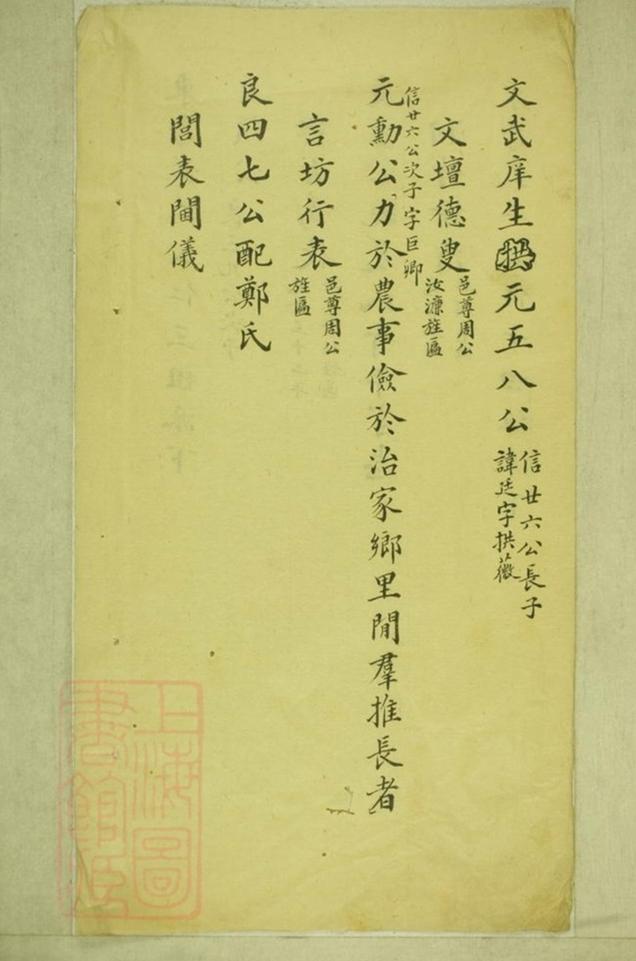 文武庠生元五八公
信廿六公長子
諱廷字拱薇
文壇德叟
邑尊周公
汝濂旌匾
信廿六公次子字巨卿
元勳公力於農事儉於治家鄉里閒羣推長者
言坊行表
邑尊周公
旌匾
良四七公配鄭氏
閭表閫儀
上海圖
書館藏